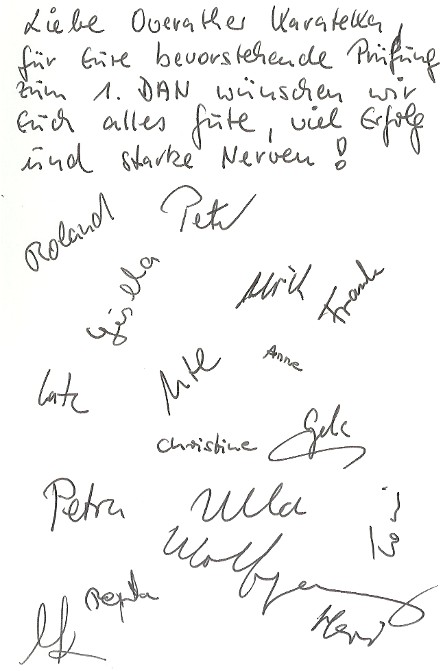 Liebe Overather Karateka,
für Eure bevorstehende Prüfung
zum 1. DAN wünschen wir
Euch alles gute, viel Erfolg
und starke Nerven!
Roland Petr
Gisela
Ulrich Frank
Lutz Ute Anne
Christine
Petra Ulla
Wolfgang